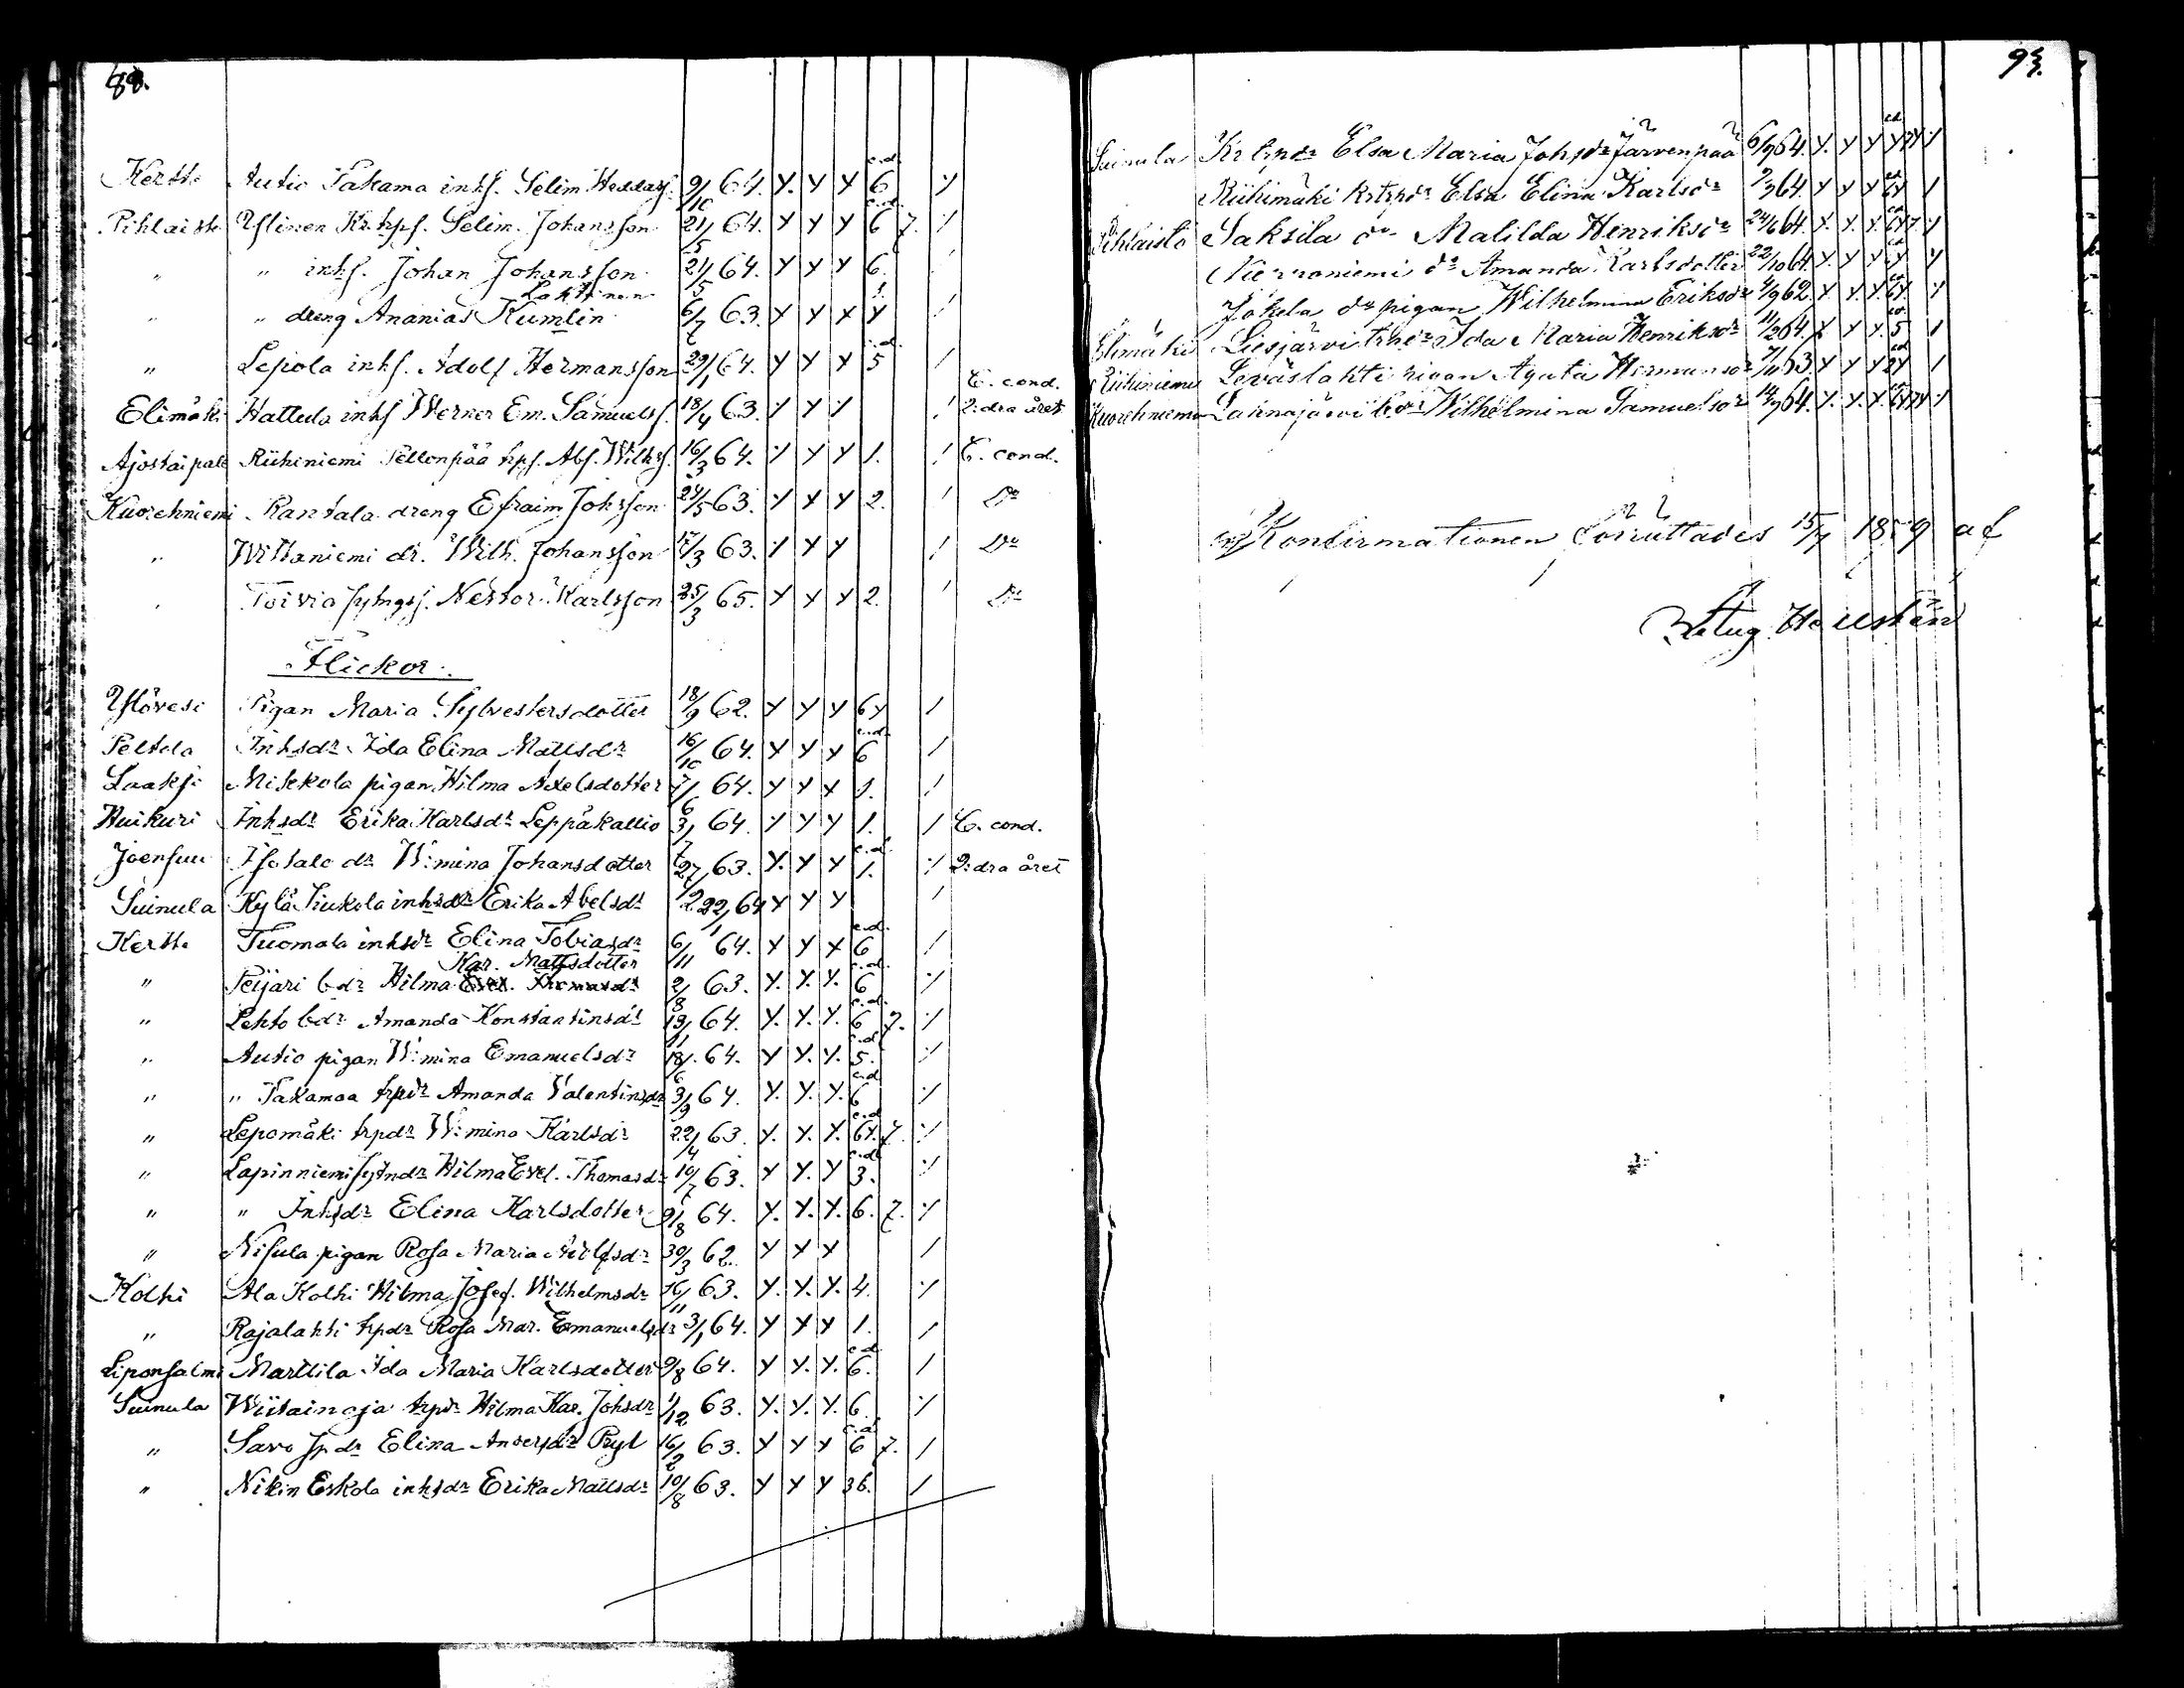 88.
Kertte Autio Takama inhs. Selim Heddas. 9/10 64. y. y y e.d. 6 y
Pihlaisto Ylinen Kr. trps. Selim Johansson 21/5 64. y y y e.d. 6 7. /
" " inhs. Johan Johansson 21/5 64. y y y 6. /
Laktinen
" " dreng Ananias Kumlin 6/7 63. y y x y /
" Lepola inhs. Adolf Hermansson 29/1 64. y y x e.d. 5 /
Elimäki Hattula inhs Werner Em. Samuelss. 18/4 63. y y y / C. cond. 2:dra året
Ajostaipale Riihiniemi Pellonpää trps. Abf. Wilhs. 16/3 64. y y y 1. / C. cond.
Kuorehniemi Rantala dreng Efraim Johsson 24/5 63. y y y 2. / Do
" Wittaniemi dr. Wilh. Johansson 17/3 63. y y y / Do
" Toivia sytngs. Nestor Karlsson 25/3 65. y y y 2. / Do
Flickor.
Ylövesi Pigan Maria Sylvestersdotter 18/9 62. y y y 6y /
Peltola Inhsdr Ida Elina Mattsdr 16/10 64. y y y e.d. 6 /
Laaksi Miskola pigan Hilma Axelsdotter 7/6 64. y y x 1. /
Huikuri Inhsdr Erika Karlsdr Leppäkallio 3/7 64. y y y 1. / C. cond.
Joensuu Isotalo dr W:mina Johansdotter 27/9 63. y. y y e.d. 1. y 2:dra året
Suinula Kylä Siukola inhsdr Erika Abelsdr 22/1 64 y y y /
Kertte Tuomala inhsdr Elina Tobiasdr 6/11 64. y y x e.d. 6 /
Kar. Mattsdotter
" Peijari bdr Hilma Evel. Thomasdr 2/8 63. y. y. y. e.d. 6 y
" Lehto bdr Amanda Konstantinsdr 19/11 64. y. y. y. e.d. 6 7. y
" Autio pigan W:mina Emanuelsdr 18/6 64. y y. y. e.d. 5. y
" " Takamaa trpdr Amanda Valentinsdr 3/9 64. y. y. y. e.d. 6 y
" Lepomäki trpdr W:mina Karlsdr 22/4 63. y. y. y. e.d. 6y. 7. y
" Lapinniemi sytndr Hilma Evel. Thomasdr 10/7 63. y y. y e.d. 3. y
" " Inhsdr Elina Karlsdotter 9/8 64. y. y. y. 6. 7. y
" Nisula pigan Rosa Maria Adolfsdr 30/3 62. y y x /
Kolhi Ala Kolhi Hilma Josef. Wilhelmsdr 16/11 63. y. y. y. 4. y
" Rajalahti trpdr Rosa Mar. Emanuelsdr 3/1 64. y y y 1. /
Liponsalmi Marttila Ida Maria Karlsdotter 9/8 64. y y. y. e.d. 6. /
Suinula Wiitainoja trpdr Hilma Kar. Johsdr 1/12 63. y. y. y. 6. y
" Savo spdr Elina Andersdr Pryl 16/2 63. y y y e.d. 6 7. /
" Nikin Eskola inhsdr Erika Mattsdr 10/8 63. y y y 36. /
Suinula Kr trpdr Elsa Maria Johsdr Järvenpää 6/9 64. y. y y e.d. y 7y /
Riihimäki Krtrpdr Elsa Elina Karlsdr 9/9 64. y y y e.d. 6y /
Pihlaisto Saksila dr Matilda Henriksdr 24/6 64. y. y. y. e.d. 6y 7 y
Nierraniemi dr Amanda Karlsdotter 22/10 64. y. y y e.d. y y
Jokela dr pigan Wilhelmina Eriksdr 4/9 62. y y. y. e.d. 6y. y
Elimäki Liesjärvi trpdr Ida Maria Henriksdr 11/2 64. y y y. e.d. 5 /
Riihiniemi Leväslahti pigan Agata Hermansdr 7/10 63. y y y e.d. 2y /
Kuorehniemi Lahnajärvi bdr Wilhelmina Samuelsdr 14/9 64. y. y. y. e.d. 6y 7y y
Konfirmationen förrättades 15/7 18 9 af
93.